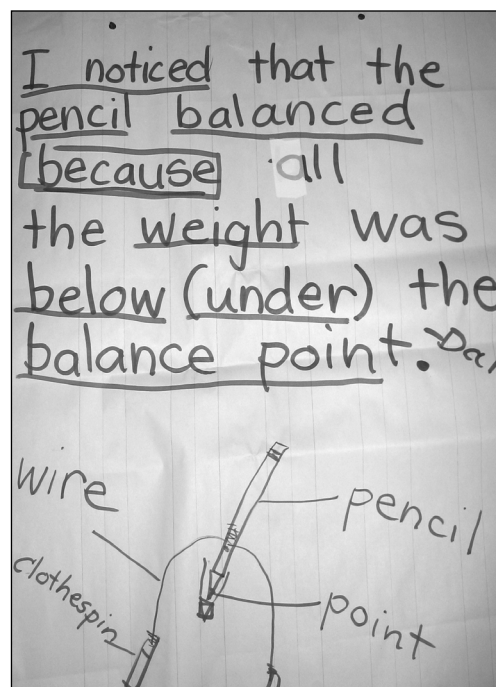 I noticed that the
pencil balanced
because all
the weight was
below (under) the
balance point.
wire
pencil
clothespin
point